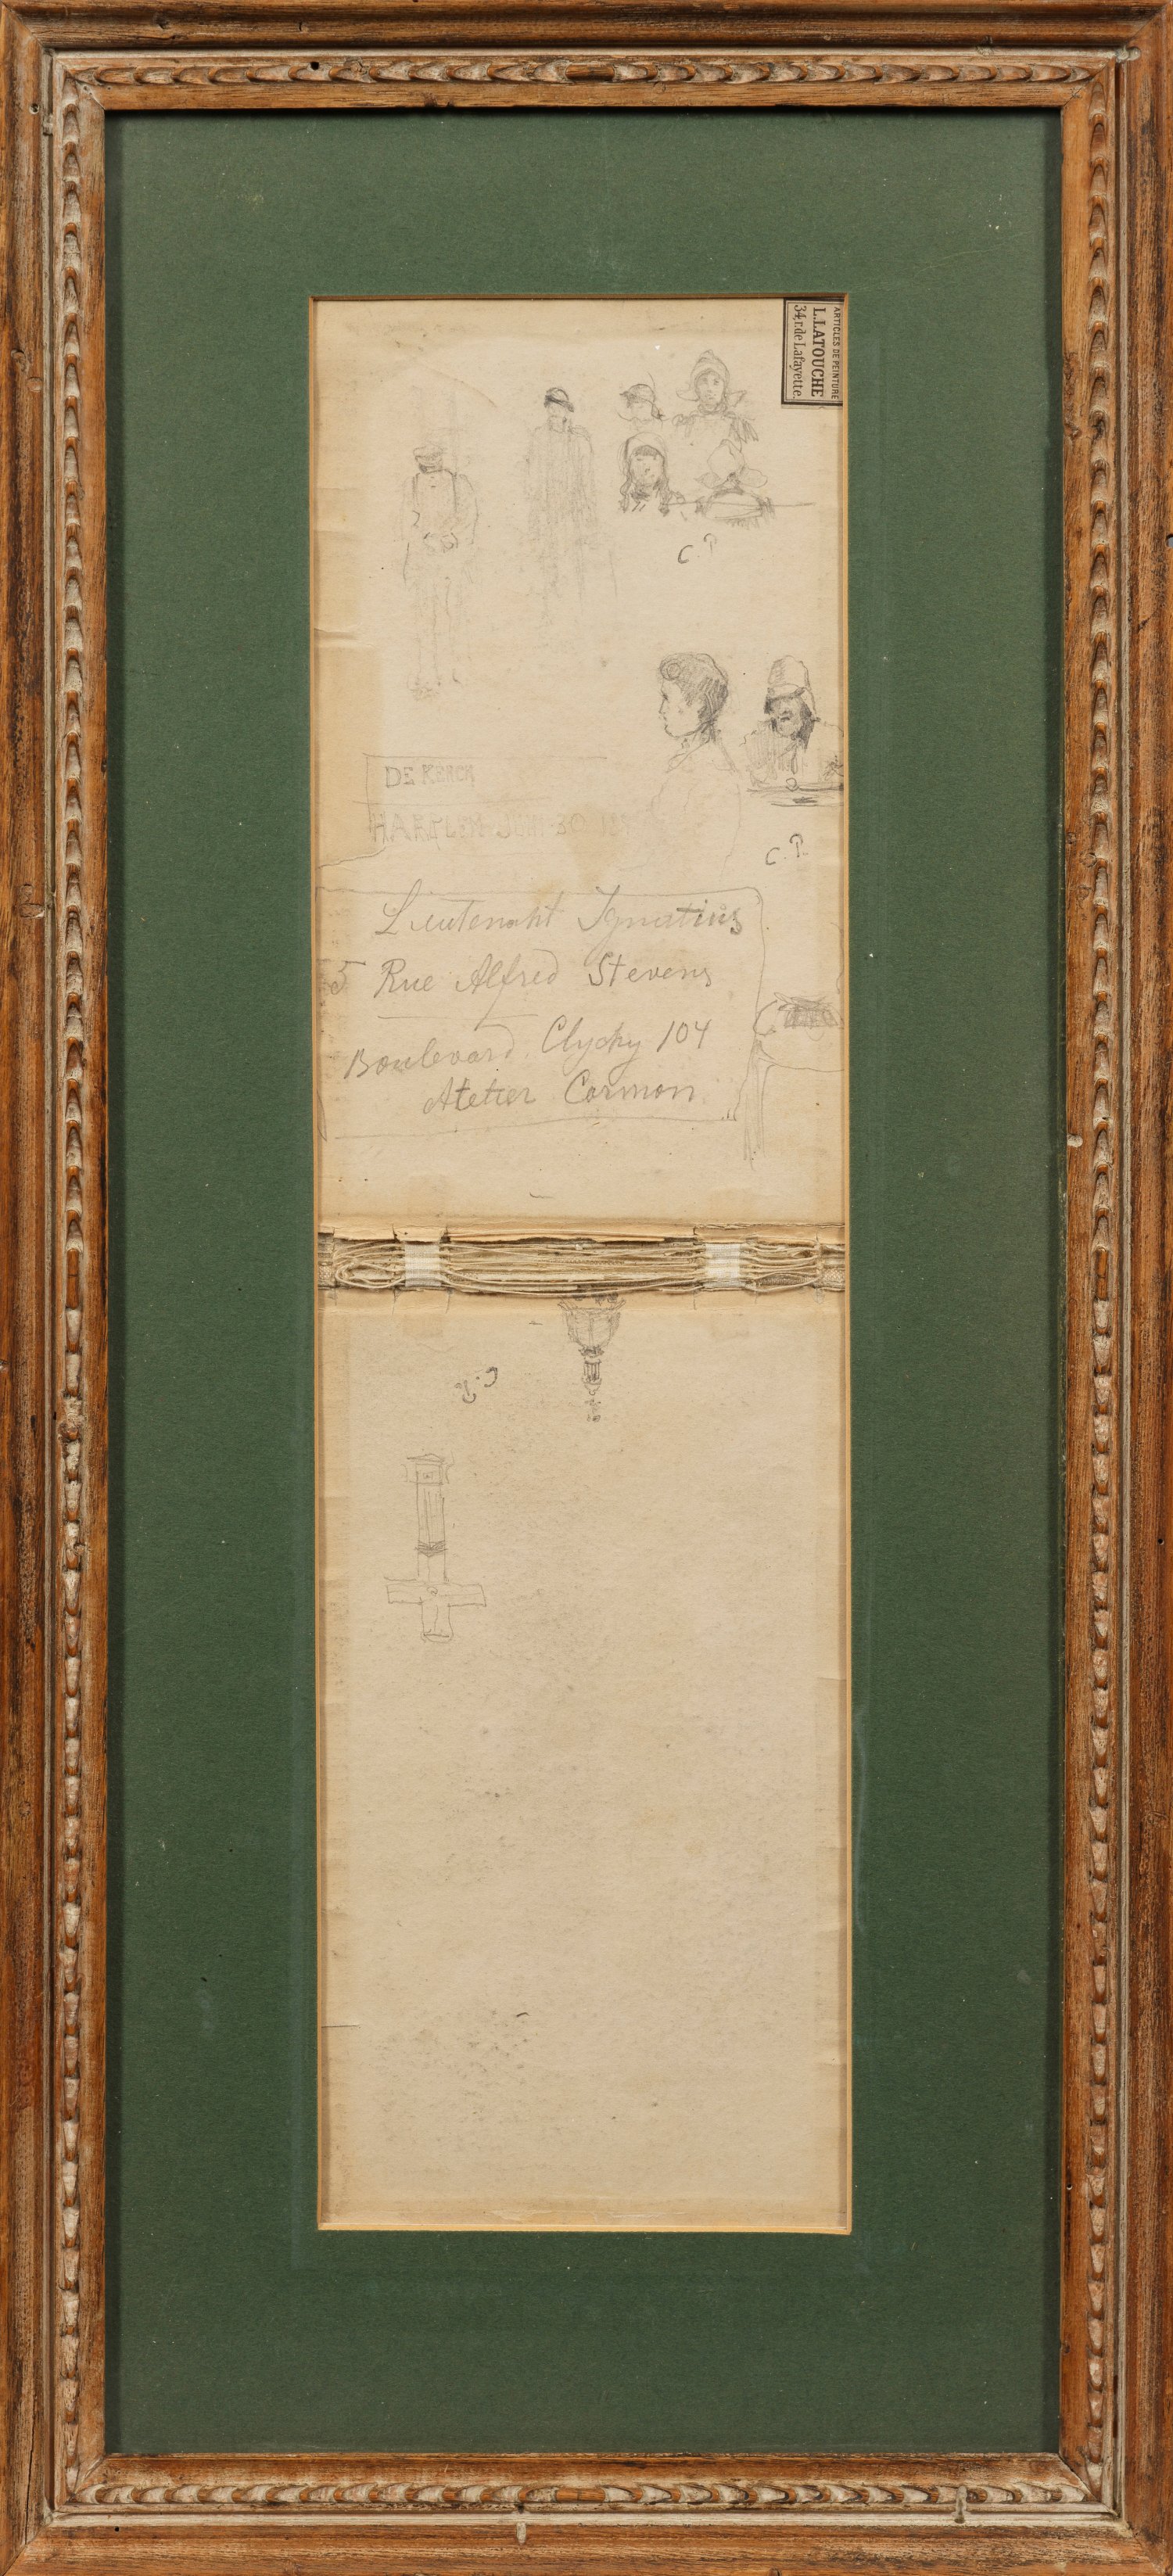 ARTICLES DE PEINTURE
L. LATOUCHE
34, r. de Lafayette.
C. P.
DE KERCK
HARLEM JUIN 30
C. P.
Lieutenant Ignatius
5 Rue Alfred Stevens
Boulevard Clychy 104
Atelier Cormon
C. P.